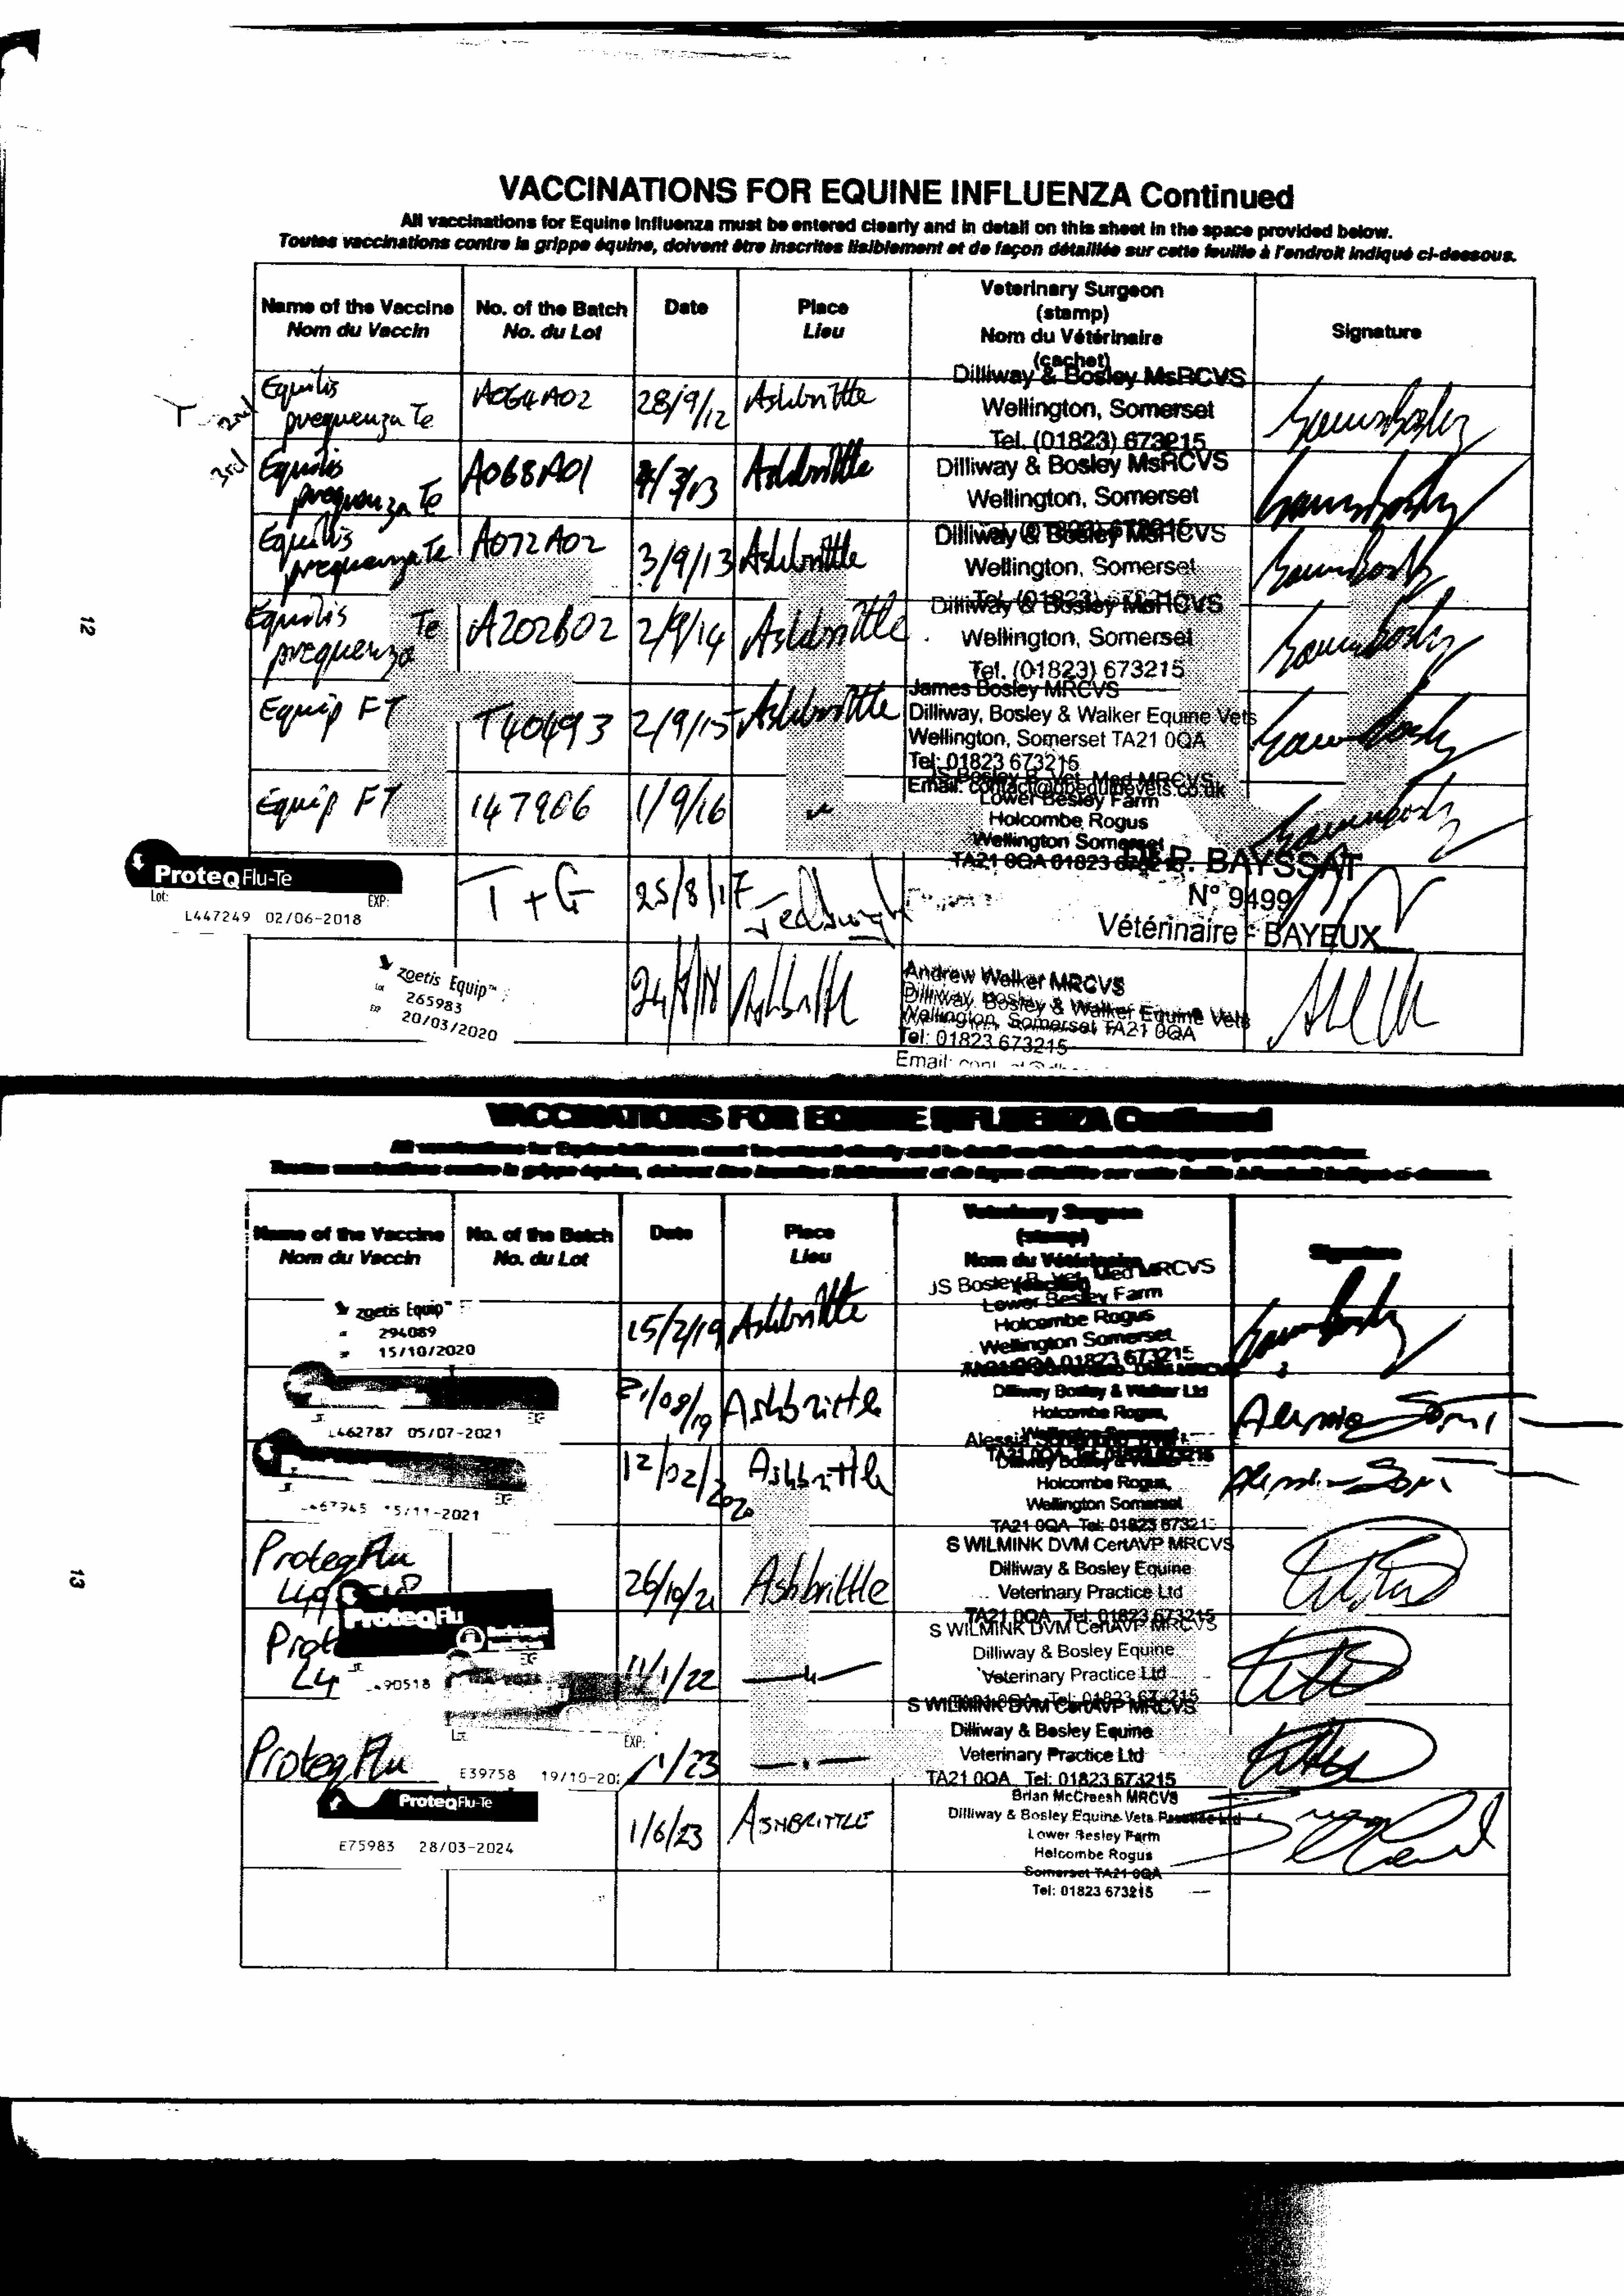 VACCINATIONS FOR EQUINE INFLUENZA Continued
All vaccinations for Equine Influenza must be entered clearly and in detail on this sheet in the space provided below.
Toutes vaccinations contre la grippe équine, doivent être inscrites lisiblement et de façon détaillée sur cette feuille à l'endroit indiqué ci-dessous.
Name of the Vaccine
Nom du Vaccin
No. of the Batch
No. du Lot
Date
Place
Lieu
Veterinary Surgeon
(stamp)
Nom du Vétérinaire
(cachet)
Signature
2nd
Equilis
prequenza Te
A064A02
28/9/12
Ashbrittle
Dilliway & Bosley MsRCVS
Wellington, Somerset
Tel. (01823) 673215
3rd
Equilis
prequenza Te
A068A01
/3/13
Ashbrittle
Dilliway & Bosley MsRCVS
Wellington, Somerset
Equilis
prequenza Te
A072A02
3/9/13
Ashbrittle
Dilliway & Bosley MsRCVS
Wellington, Somerset
Equilis
prequenza Te
A202B02
2/9/14
Ashbrittle
Dilliway & Bosley MsRCVS
Wellington, Somerset
Tel. (01823) 673215
Equip FT
T40493
2/9/15
Ashbrittle
James Bosley MRCVS
Dilliway, Bosley & Walker Equine Vets
Wellington, Somerset TA21 0QA
Tel: 01823 673215
Equip FT
147906
1/9/16
JS Bosley B. Vet. Med MRCVS
Lower Besley Farm
Holcombe Rogus
Wellington Somerset
TA21 0QA 01823 673215
ProteqFlu-Te
Lot:
EXP:
L447249 02/06-2018
T + G
25/8/17
P. BAYSSAT
N° 9499
Vétérinaire - BAYEUX
zoetis Equip™
Lot 265983
EXP 20/03/2020
Ashbrittle
Andrew Walker MRCVS
Dilliway, Bosley & Walker Equine Vets
Wellington, Somerset TA21 0QA
Tel: 01823 673215
Email:
12
VACCINATIONS FOR EQUINE INFLUENZA Continued
Name of the Vaccine
Nom du Vaccin
No. of the Batch
No. du Lot
Date
Place
Lieu
Veterinary Surgeon
(stamp)
Nom du Vétérinaire
Signature
zoetis Equip™
294089
15/10/2020
15/2/19
Ashbrittle
JS Bosley B. Vet. Med MRCVS
Lower Besley Farm
Holcombe Rogus
Wellington Somerset
TA21 0QA 01823 673215
L462787 05/07-2021
/08/19
Ashbrittle
Dilliway Bosley & Walker Ltd
Holcombe Rogus,
15/11-2021
12/02/2020
Ashbrittle
Holcombe Rogus,
Wellington Somerset
TA21 0QA Tel: 01823 673215
ProteqFlu
26/10/21
Ashbrittle
S WILMINK DVM CertAVP MRCVS
Dilliway & Bosley Equine
Veterinary Practice Ltd
TA21 0QA Tel: 01823 673215
ProteqFlu
90518
/1/22
S WILMINK DVM CertAVP MRCVS
Dilliway & Bosley Equine
Veterinary Practice Ltd
ProteqFlu
EXP:
E39758
/1/23
S WILMINK DVM CertAVP MRCVS
Dilliway & Bosley Equine
Veterinary Practice Ltd
TA21 0QA Tel: 01823 673215
ProteqFlu-Te
E75983 28/03-2024
1/6/23
ASHBRITTLE
Brian McCreesh MRCVS
Dilliway & Bosley Equine Vets
Lower Besley Farm
Holcombe Rogus
Somerset TA21 0QA
Tel: 01823 673215
13